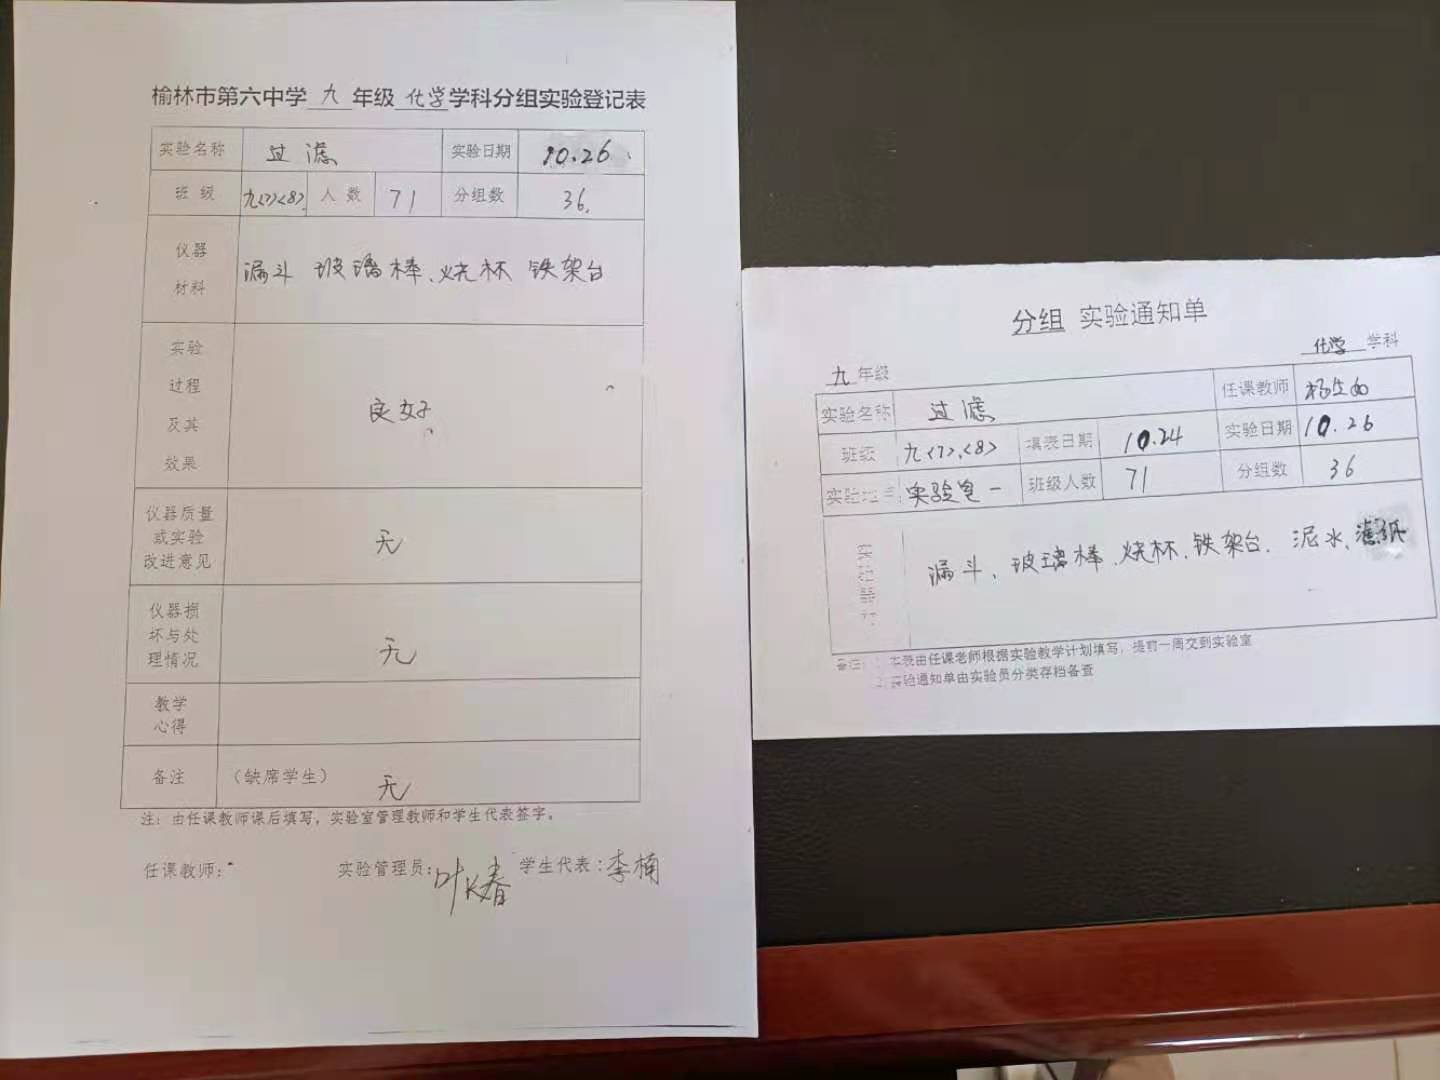 榆林市第六中学 九 年级 化学 学科分组实验登记表
实验名称 过滤 实验日期 10.26
班级 九<7><8>. 人数 71 分组数 36.
仪器材料 漏斗 玻璃棒、烧杯 铁架台
实验过程及其效果 良好
仪器质量或实验改进意见 无
仪器损坏与处理情况 无
教学心得
备注 (缺席学生) 无
注：由任课教师课后填写，实验室管理教师和学生代表签字。
任课教师： 实验管理员：叶长春 学生代表：李楠
分组 实验通知单
化学 学科
九 年级
实验名称 过滤 任课教师
班级 九<7>、<8> 填表日期 10.24 实验日期 10.26
实验地 实验室一 班级人数 71 分组数 36
漏斗、玻璃棒、烧杯、铁架台、泥水、滤纸
备注： 本表由任课老师根据实验教学计划填写，提前一周交到实验室
实验通知单由实验员分类存档备查